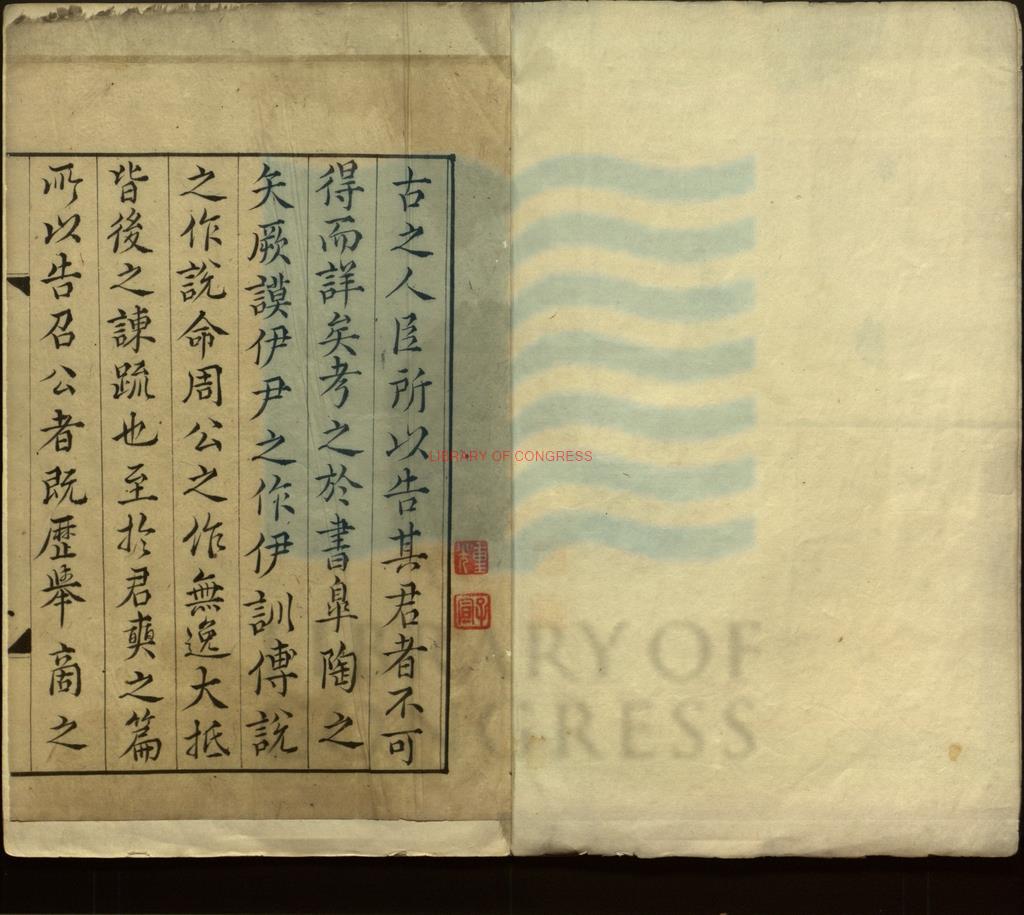 古之人臣所以告其君者不可
得而詳矣考之於書臯陶之
矢厥謨伊尹之作伊訓傅說
之作說命周公之作無逸大抵
皆後之諫疏也至於君奭之篇
所以告召公者既歷舉商之
LIBRARY OF CONGRESS
LIBRARY OF
CONGRESS